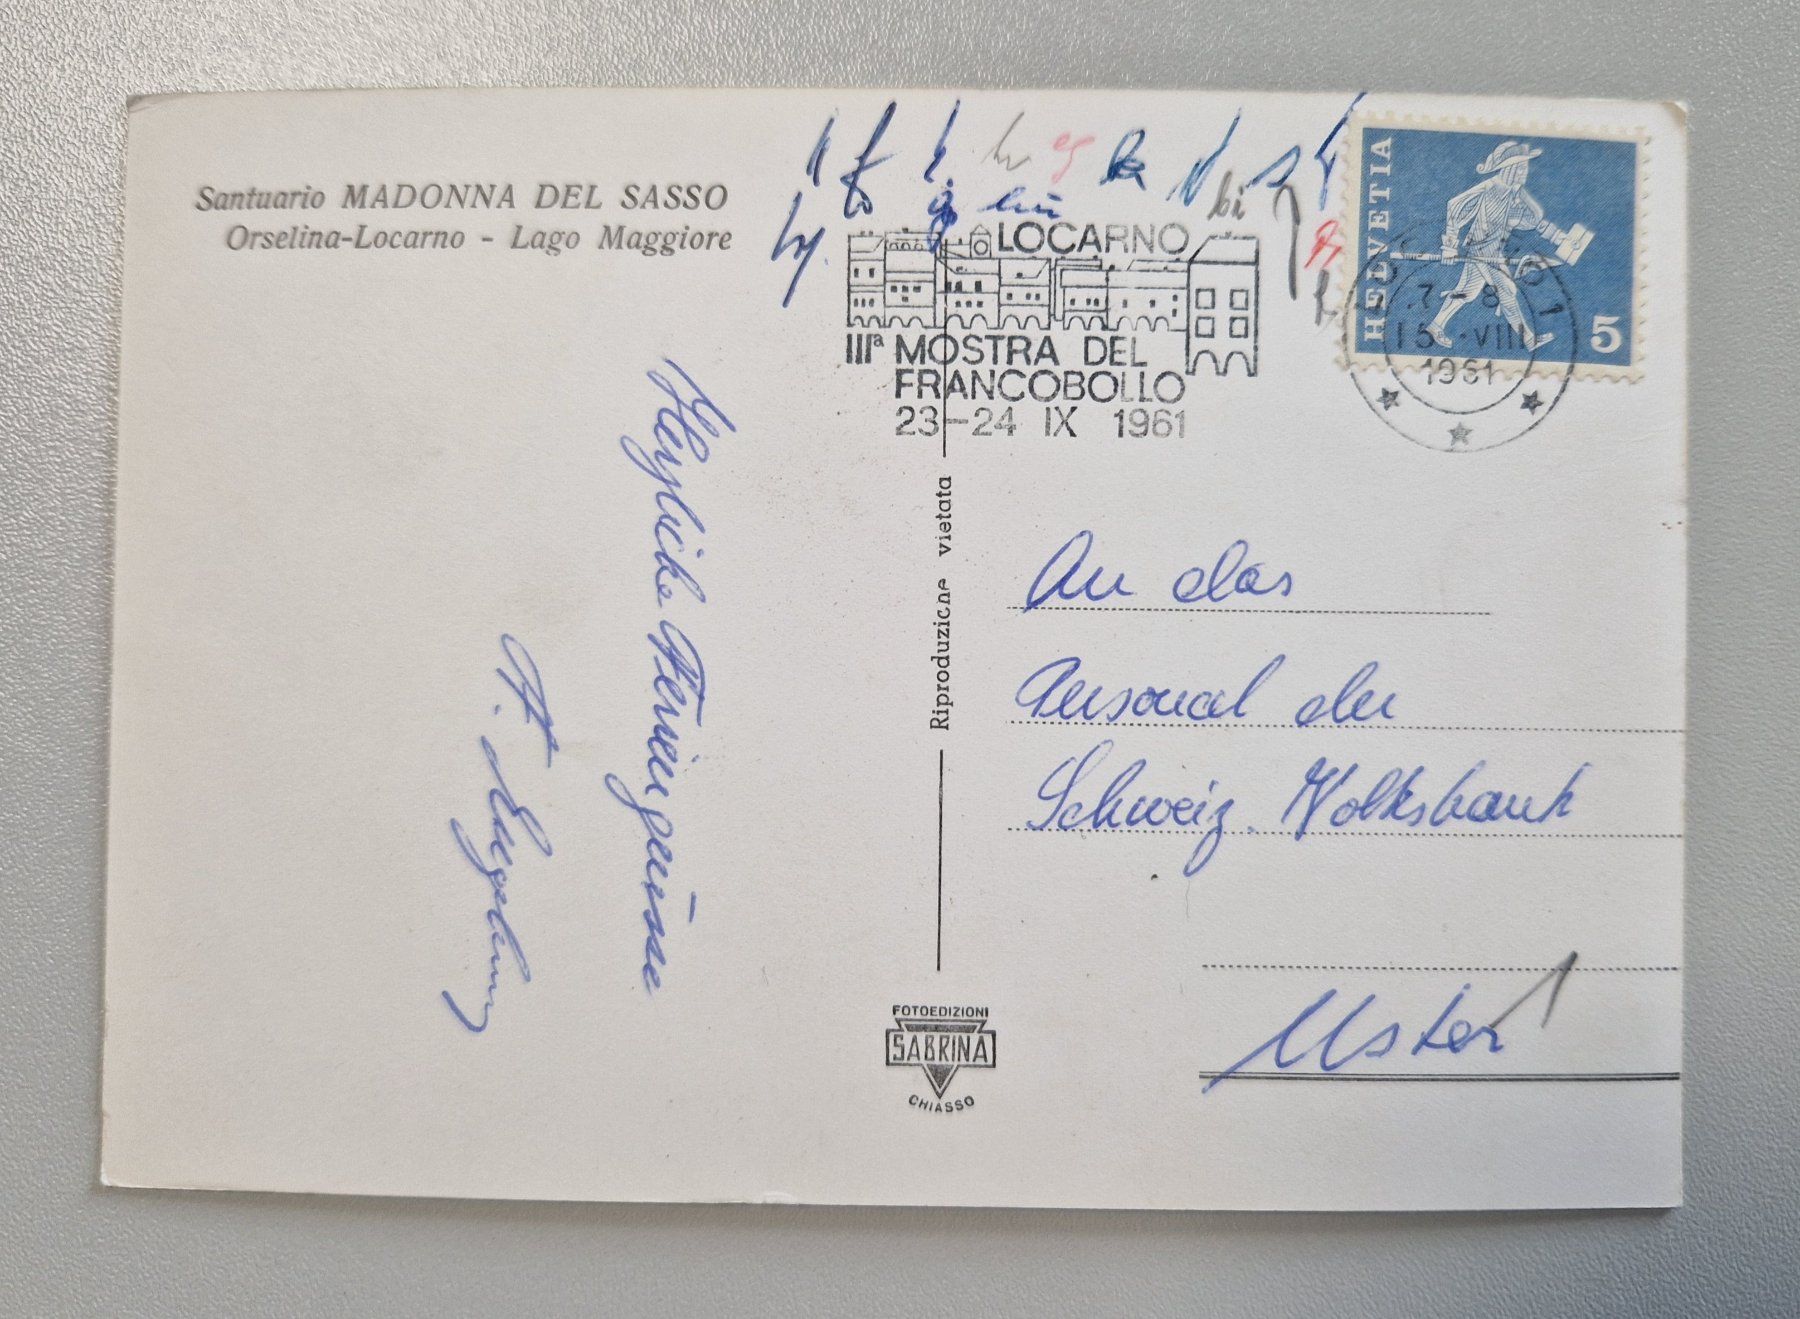 Santuario MADONNA DEL SASSO
Orselina-Locarno - Lago Maggiore
LOCARNO
IIIª MOSTRA DEL
FRANCOBOLLO
23-24 IX 1961
HELVETIA
5
7-8
15.-VIII
1961
Herzliche Feriengrüsse
Riproduzione vietata
An das
Personal der
Schweiz. Volksbank
Uster
FOTOEDIZIONI
SABRINA
CHIASSO